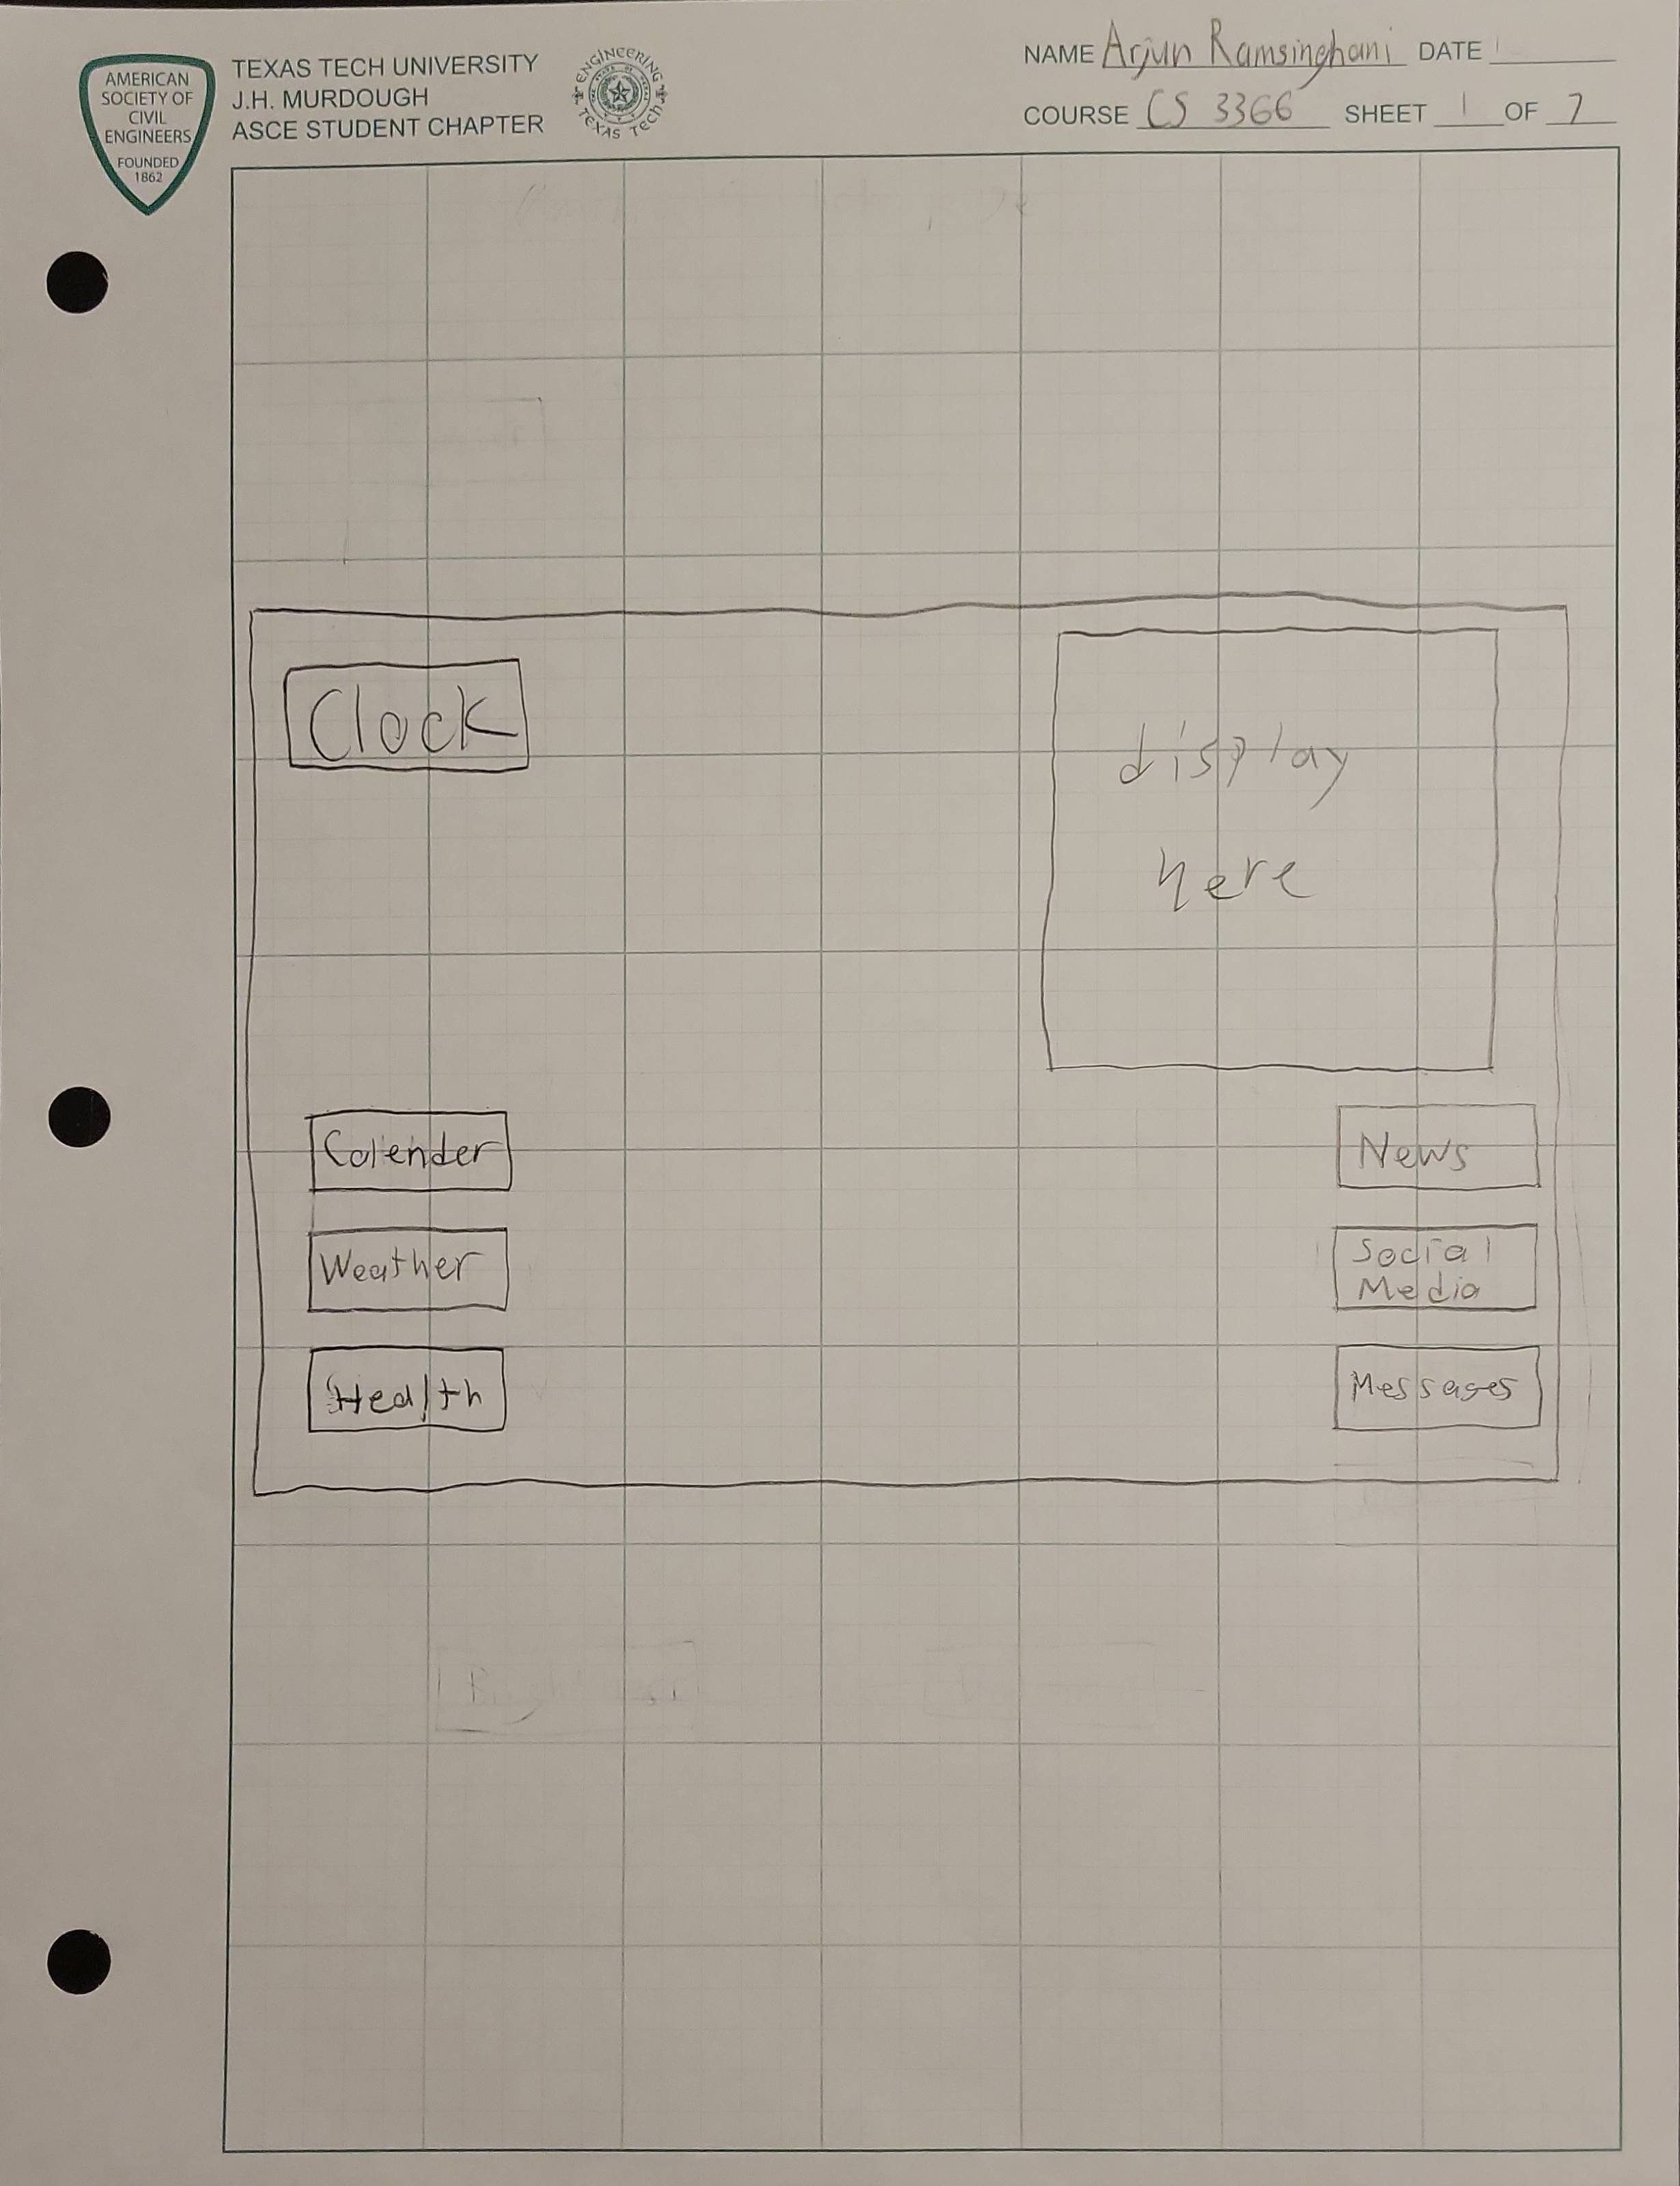 AMERICAN
SOCIETY OF
CIVIL
ENGINEERS
FOUNDED
1862
TEXAS TECH UNIVERSITY
J.H. MURDOUGH
ASCE STUDENT CHAPTER
ENGINEERING
TEXAS TECH
NAME Arjun Ramsinghani DATE
COURSE CS 3366 SHEET 1 OF 7
Clock
display
here
Calender
News
Weather
Social
Media
Health
Messages